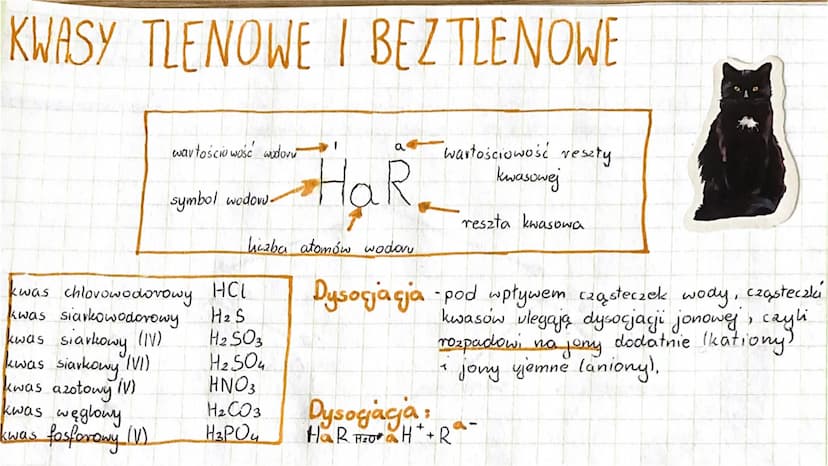 KWASY TLENOWE I BEZTLENOWE
wartościowość wodoru
I
a
wartościowość reszty
kwasowej
HaR
symbol wodoru
reszta kwasowa
liczba atomów wodoru
kwas chlorowodorowy HCl
kwas siarkowodorowy H₂S
kwas siarkowy (IV) H₂SO₃
kwas siarkowy (VI) H₂SO₄
kwas azotowy (V) HNO₃
kwas węglowy H₂CO₃
kwas fosforowy (V) H₃PO₄
Dysocjacja - pod wpływem cząsteczek wody, cząsteczki
kwasów ulegają dysocjacji jonowej, czyli
rozpadowi na jony dodatnie (kationy)
i jony ujemne (aniony).
Dysocjacja:
HaR H₂O→ aH⁺ + Rᵃ⁻